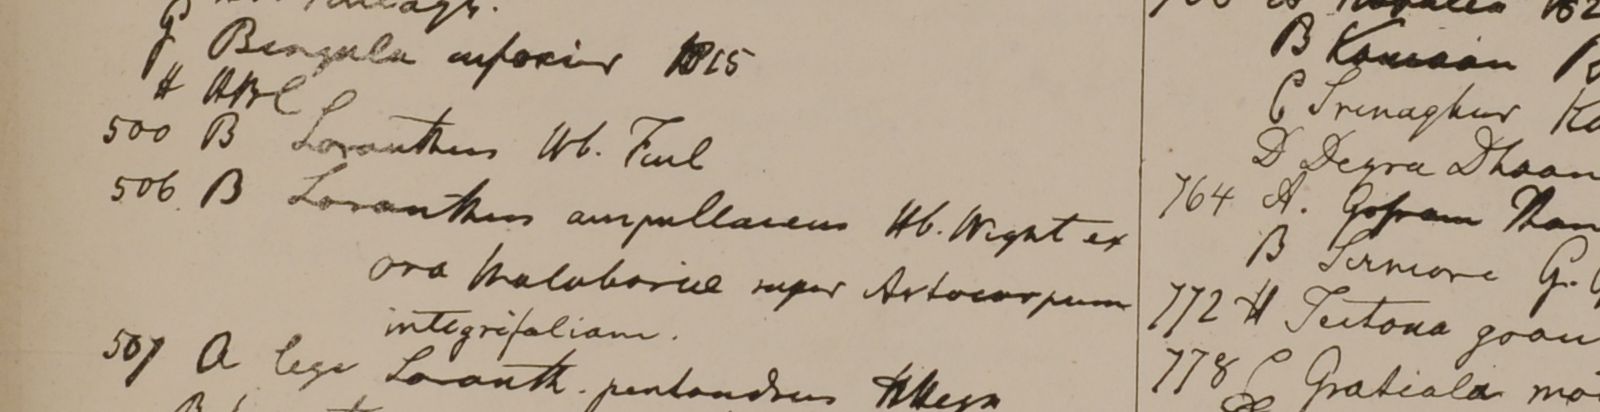 G
g Bengala inferior 1815
H HBC
500 B Loranthus Hb. Finl
506 B Loranthus ampullaceus Hb. Wight ex
ora Malabariae super Artocarpum
integrifoliam.
507 A lege Loranth. pentandrus
B Kamaon
C Srinaghur
D Deyra Dhoon
764 A.
B Sirmore G.
772 H Tectona
778 C Gratiola